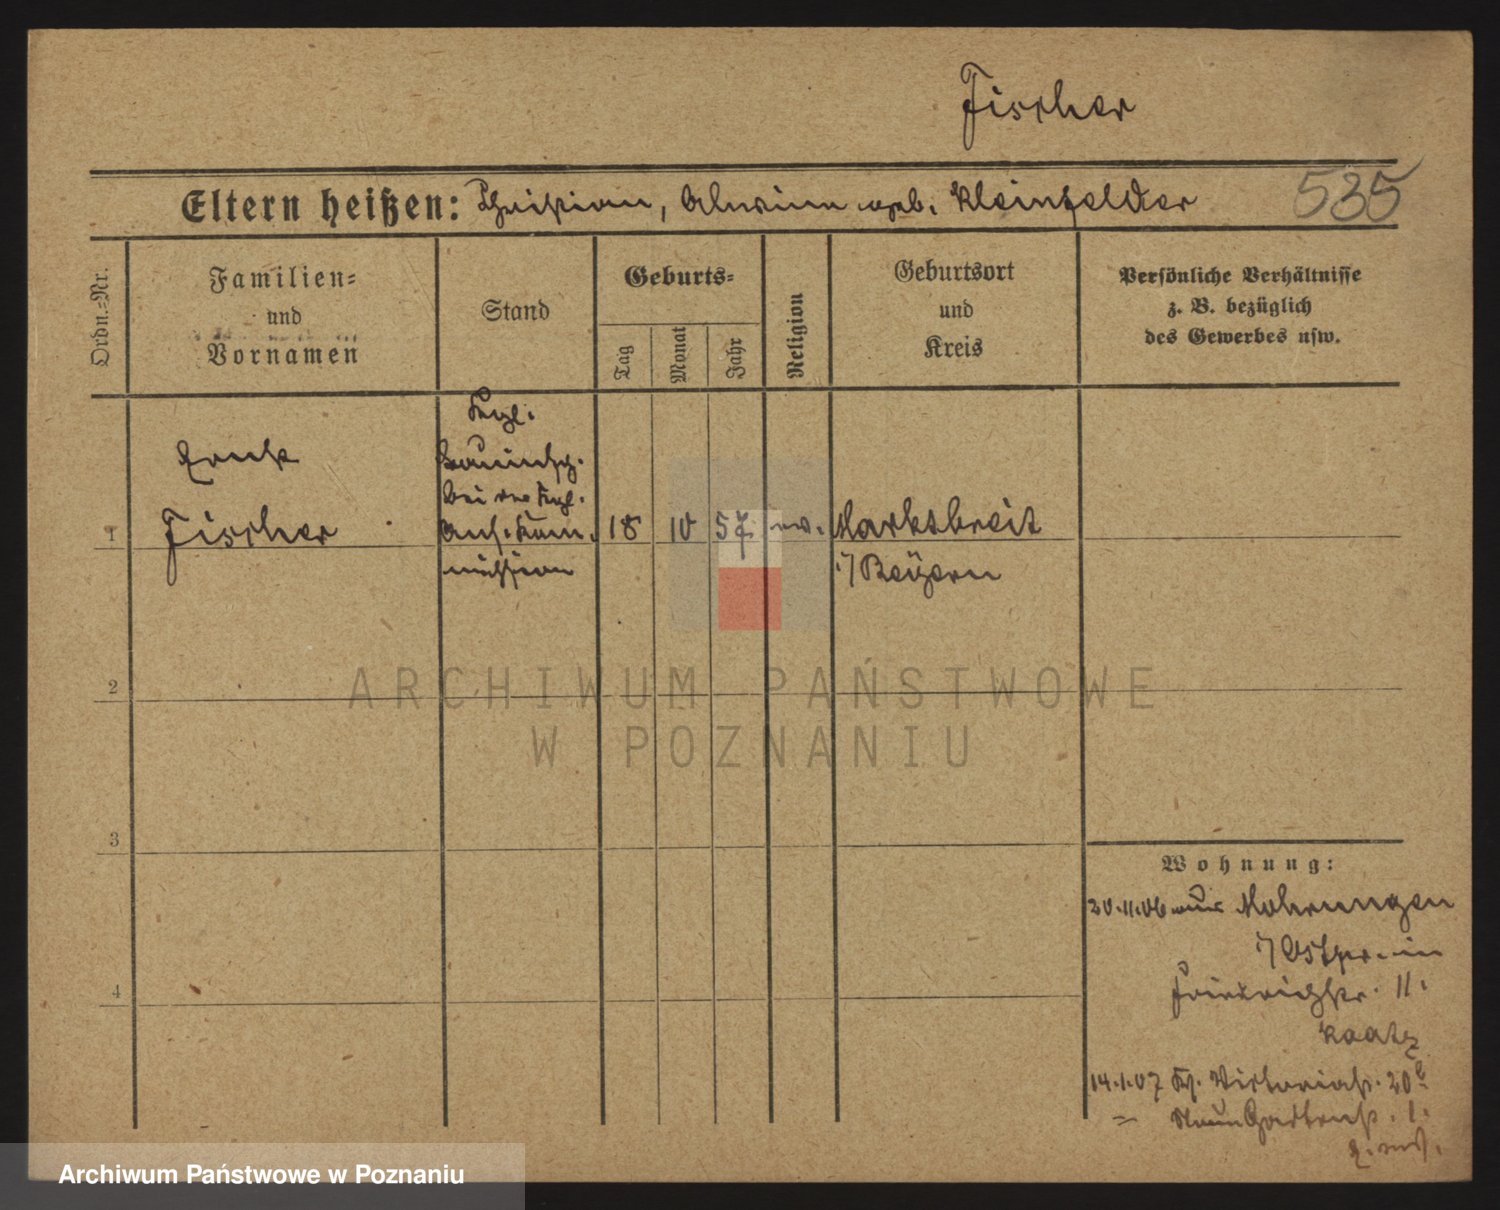 Fischer
Eltern heißen: Christian, Alwine geb. Kleinfelder
535
Ordn.-Nr.
Familien-
und
Vornamen
Stand
Geburts-
Tag
Monat
Jahr
Religion
Geburtsort
und
Kreis
Persönliche Verhältnisse
z. B. bezüglich
des Gewerbes usw.
1
Ernst
Fischer
Kgl.
Bauinsp.
bei der Kgl.
Ans. Kom.
mission
18
10
57
ev.
Marktbreit
i/Bayern
2
3
4
Wohnung:
20.11.06 aus Mohrungen
i/Ostpr. in
Friedrichstr. 11.
Kaatz
14.1.07 Viktoriastr. 20
1.
ARCHIWUM PAŃSTWOWE
W POZNANIU
Archiwum Państwowe w Poznaniu